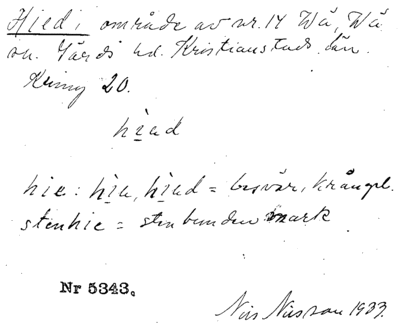 Hied; område av nr. 14 Wä, Wä
sn. Gärds hd. Kristianstads län.
20.
hiad
hie: hia, hiad = besvär, krångel.
stenhie = stenbunden mark
Nr 5343.
Nils Nilsson 1933.